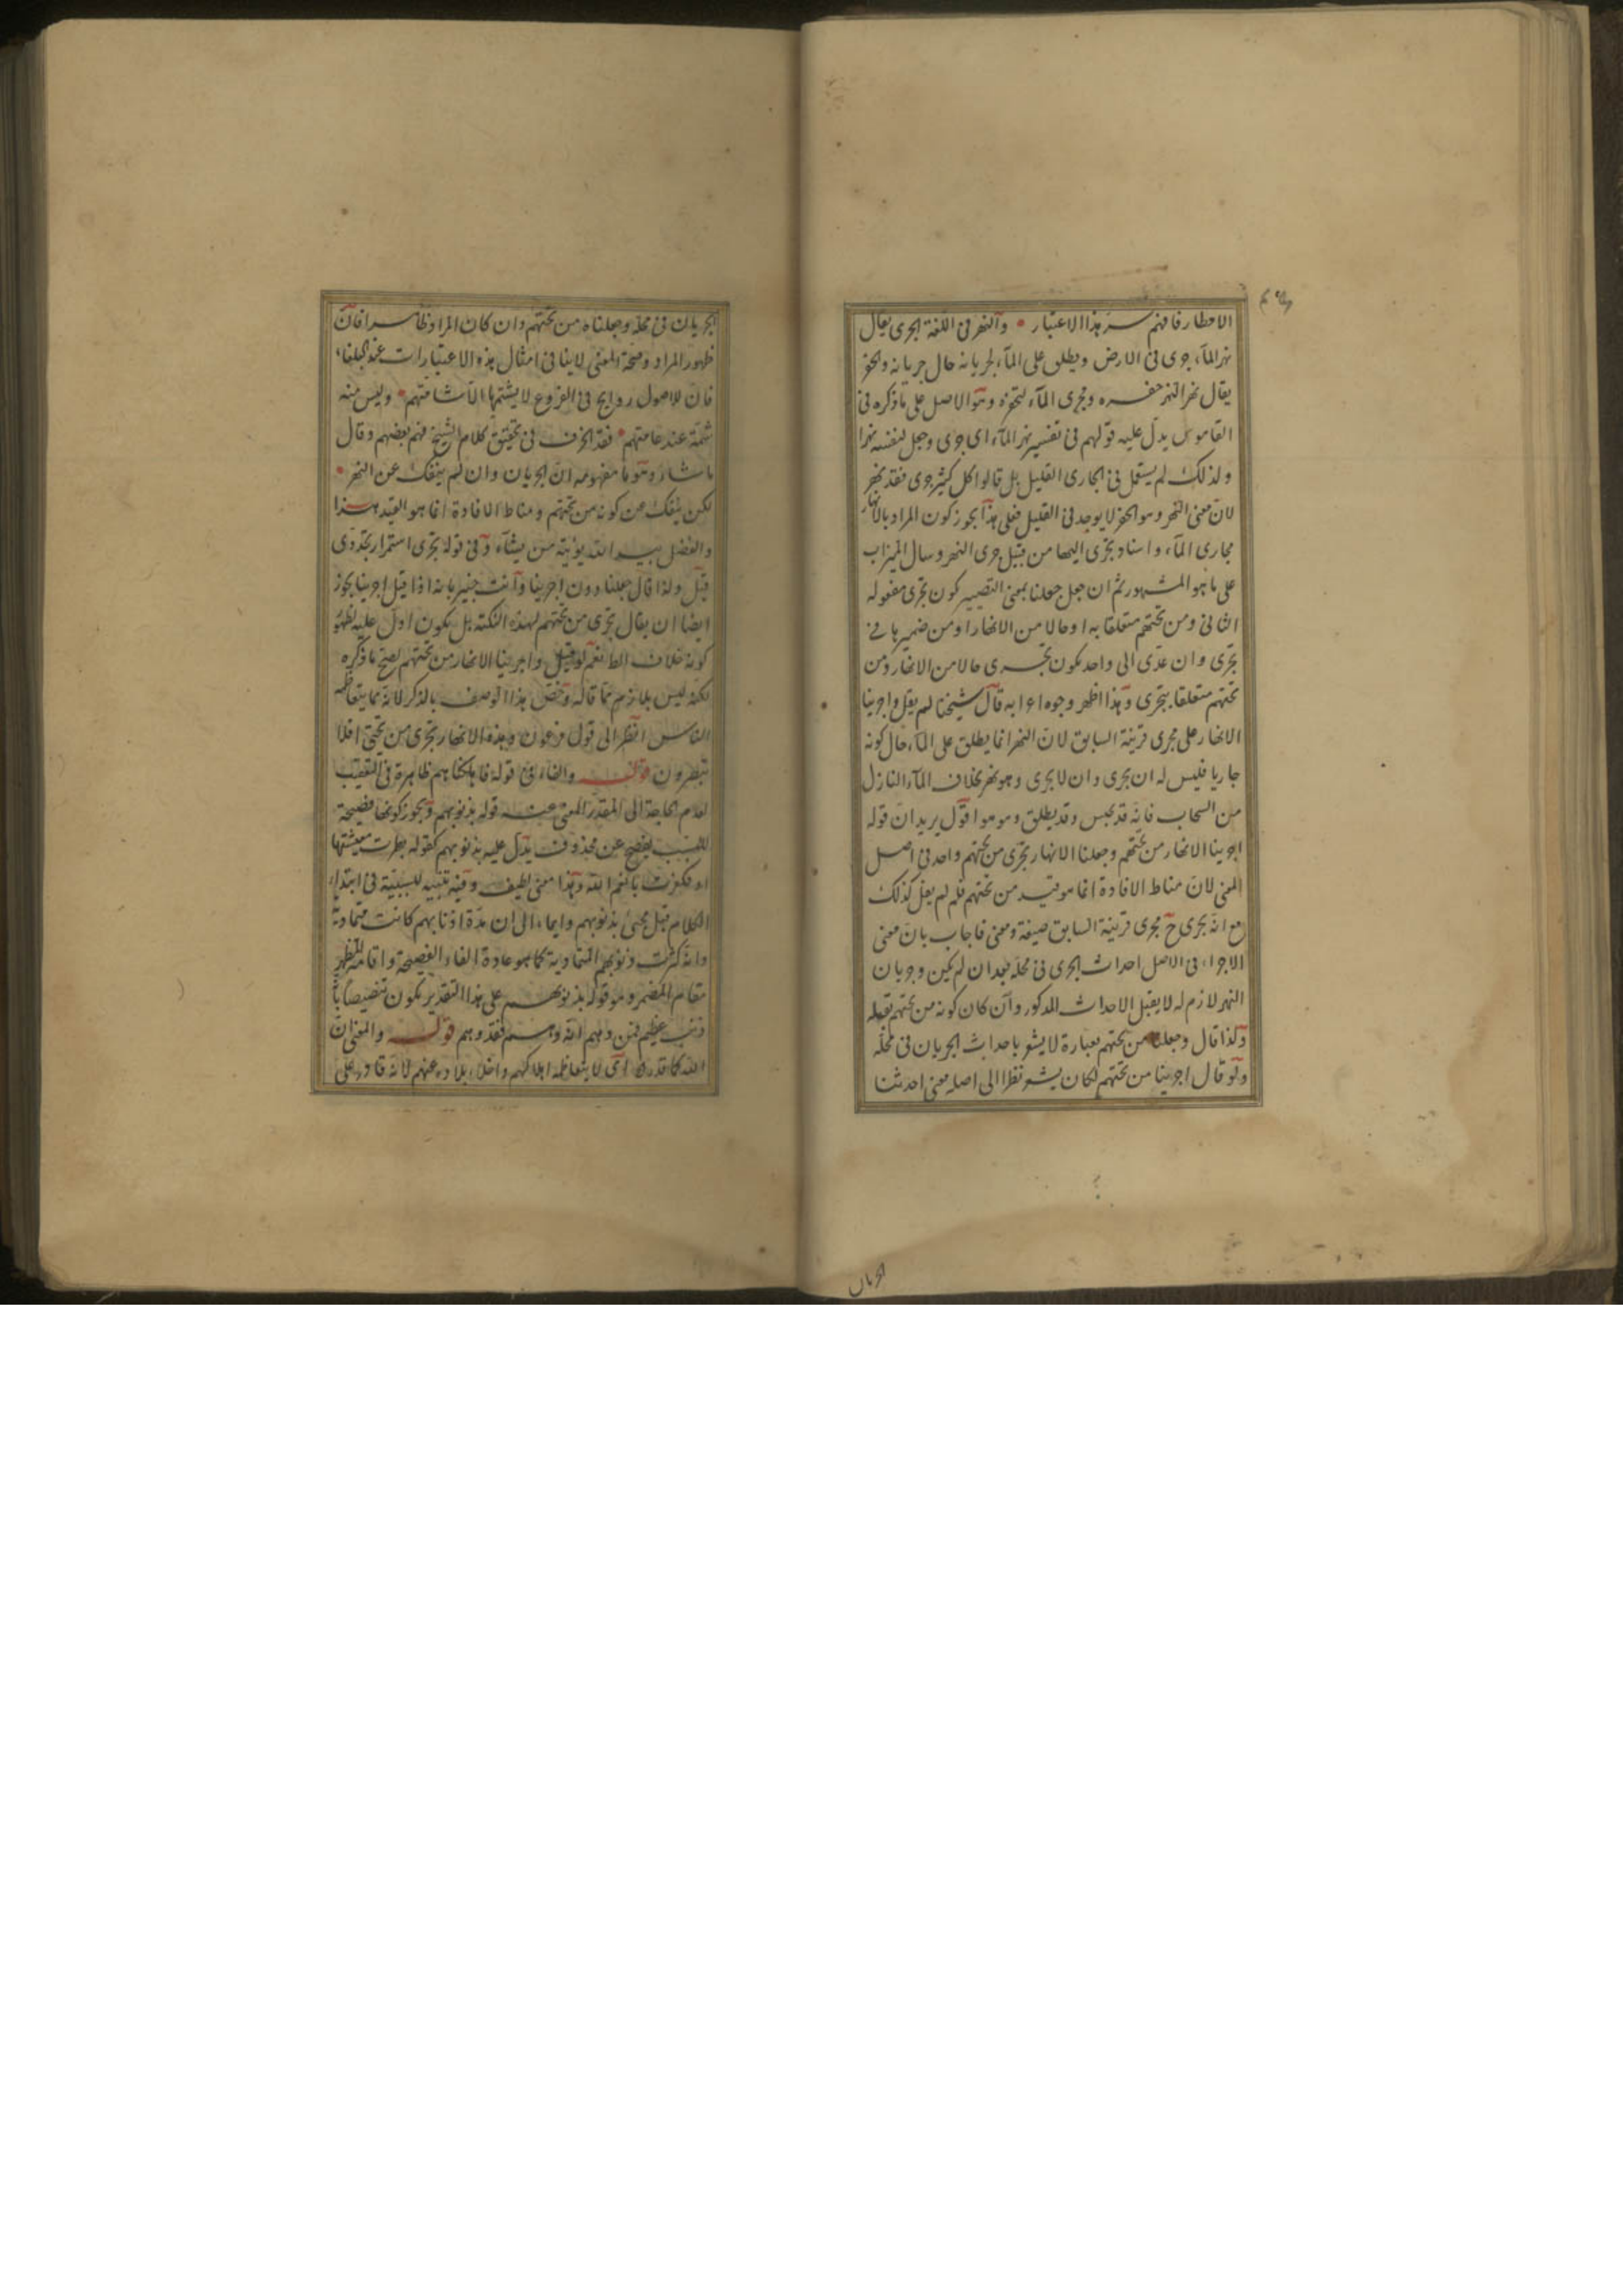 الامطار فافهم سر هذا الاعتبار • والنهر فى اللغة الجرى يقال
نهر المآء جرى فى الارض ويطلق على المآء لجريانه حال جريانه والحفر
يقال نهر النهر حفره ومجرى المآء لتحفره وهو الاصل على ما ذكره فى
القاموس يدل عليه قولهم فى تفسير نهر المآء اى جرى وجعل لنفسه نهرا
ولذلك لم يستعمل فى الجارى القليل بل قالوا كل كثير جرى فقد نهر
لان معنى النهر وهو الحفر لا يوجد فى القليل فعلى هذا يجوز كون المراد بالانهار
مجارى المآء واسناد تجرى اليها من قبيل جرى النهر وسال الميزاب
على ما هو المشهور ثم ان جعل جعلنا بمعنى التصيير كون تجرى مفعوله
الثانى ومن تحتهم متعلقا به او حالا من الانهار او من ضميرها فى
تجرى وان عدى الى واحد يكون تجرى حالا من الانهار ومن
تحتهم متعلقا بتجرى وهذا اظهر وجوه اعرابه قال شيخنا لم يقل واجرينا
الانهار على مجرى قرينة السابق لان النهر انما يطلق على المآء حال كونه
جاريا فليس له ان يجرى وان لا يجرى وهو نهر بخلاف المآء النازل
من السحاب فانه قد يحبس وقد يطلق وهو هو اقول يريد ان قوله
اجرينا الانهار من تحتهم وجعلنا الانهار تجرى من تحتهم واحد فى اصل
المعنى لان مناط الافادة انما هو قيد من تحتهم فلم لم يقل كذلك
مع انه يجرى ح مجرى قرينة السابق صيغة ومعنى فاجاب بان معنى
الاجراء فى الاصل احداث الجرى فى محله بعد ان لم يكن وجريان
النهر لازم له لا يقبل الاحداث المذكور وان كان كونه من تحتهم يقبله
وكذا قال وجعلنا من تحتهم بعبارة لا يشعر باحداث الجريان فى محله
ولو قال اجرينا من تحتهم لكان يشعر نظرا الى اصله معنى احدثنا
الجريان
الجريان فى محله وجعلناه من تحتهم وان كان المراد ظاهرا فان
ظهور المراد وصحة المعنى لا ينافى امثال هذه الاعتبارات عند البلغاء
فان للاصول روايح فى الفروع لا يشتمها الا شامتهم • وليس منه
شمة عند عامتهم • فقد انحرف فى تحقيق كلام الشيخ فهم بعضهم وقال
ما شاء وهو ما مفهومه ان الجريان وان لم ينفك عن النهر •
لكن ينفك عن كونه من تحتهم ومناط الافادة انما هو القيد هذا
والفضل بيد الله يؤتيه من يشآء وفى قوله تجرى استمرار تجددى
قيل ولذا قال جعلنا دون اجرينا وانت خبير بانه اذا قيل اجرينا يجوز
ايضا ان يقال تجرى من تحتهم لهذه النكتة بل يكون ادل عليه لظهور
كونه خلاف الظ نعم لو قيل واجرينا الانهار من تحتهم لصح ما ذكره
لكنه ليس بلازم مما قاله وخص هذا الوصف بالذكر لانه مما يتعاظمه
الناس انظر الى قول فرعون وهذه الانهار تجرى من تحتى افلا
تبصرون قوله والفاء فى قوله فاهلكناهم ظاهرة فى التعقيب
لعدم الحاجة الى المقدر المغنى عنه قوله بذنوبهم ويجوز كونها فصيحة
للتسبب يفصح عن محذوف يدل عليه بذنوبهم كقوله بطرت معيشتها
او فكفرت بانعم الله وهذا معنى لطيف وفيه تنبيه للسببية فى ابتداء
الكلام قبل مجئ بذنوبهم وايماء الى ان مدة اذنابهم كانت متمادية
وانه كثرت ذنوبهم المتمادية كما هو عادة الفاء الفصيحة واقامة المظهر
مقام المضمر وهو قوله بذنوبهم على هذا التقدير يكون تنصيصا بانه
ذنب عظيم فمن وهم انه وهم فقد وهم قوله والمعنى ان
الله كما قدر اى لا يتعاظمه اهلاكهم واخلاء بلاده عنهم لانه قادر على